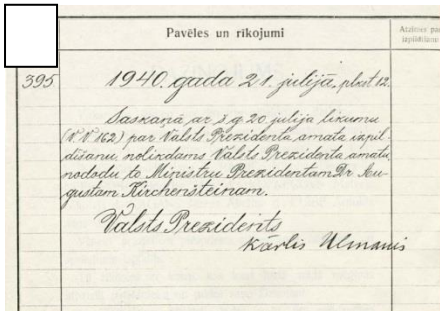 Pavēles un rīkojumi
395
1940. gada 21. julijā, plkst 12.
Saskaņā ar š.g. 20 julija likumu
(V.V. 162) par Valsts Prezidenta amata izpil-
dīšanu nolikdams Valsts Prezidenta amatu,
nododu to Ministru Prezidentam Dr Au-
gustam Kirchensteinam.
Valsts Prezidents
Kārlis Ulmanis